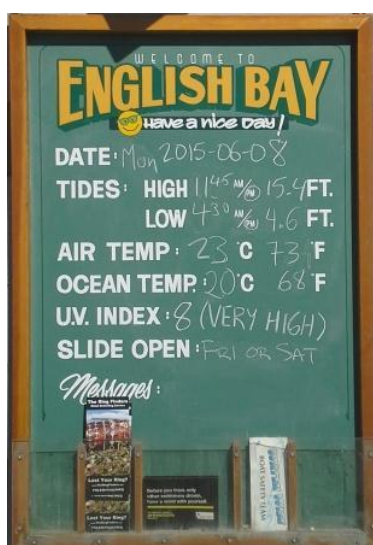 WELCOME TO
ENGLISH BAY
Have a nice Day!
DATE: Mon 2015-06-08
TIDES: HIGH 11:45 AM/PM 15.4 FT.
LOW 4:30 AM/PM 4.6 FT.
AIR TEMP: 23°C 73°F
OCEAN TEMP: 20°C 68°F
U.V. INDEX: 8 (VERY HIGH)
SLIDE OPEN: FRI OR SAT
Messages:
The Ring Finders
Lost Your Ring?
Lost Your Ring?
BOAT SAFETY TEAM